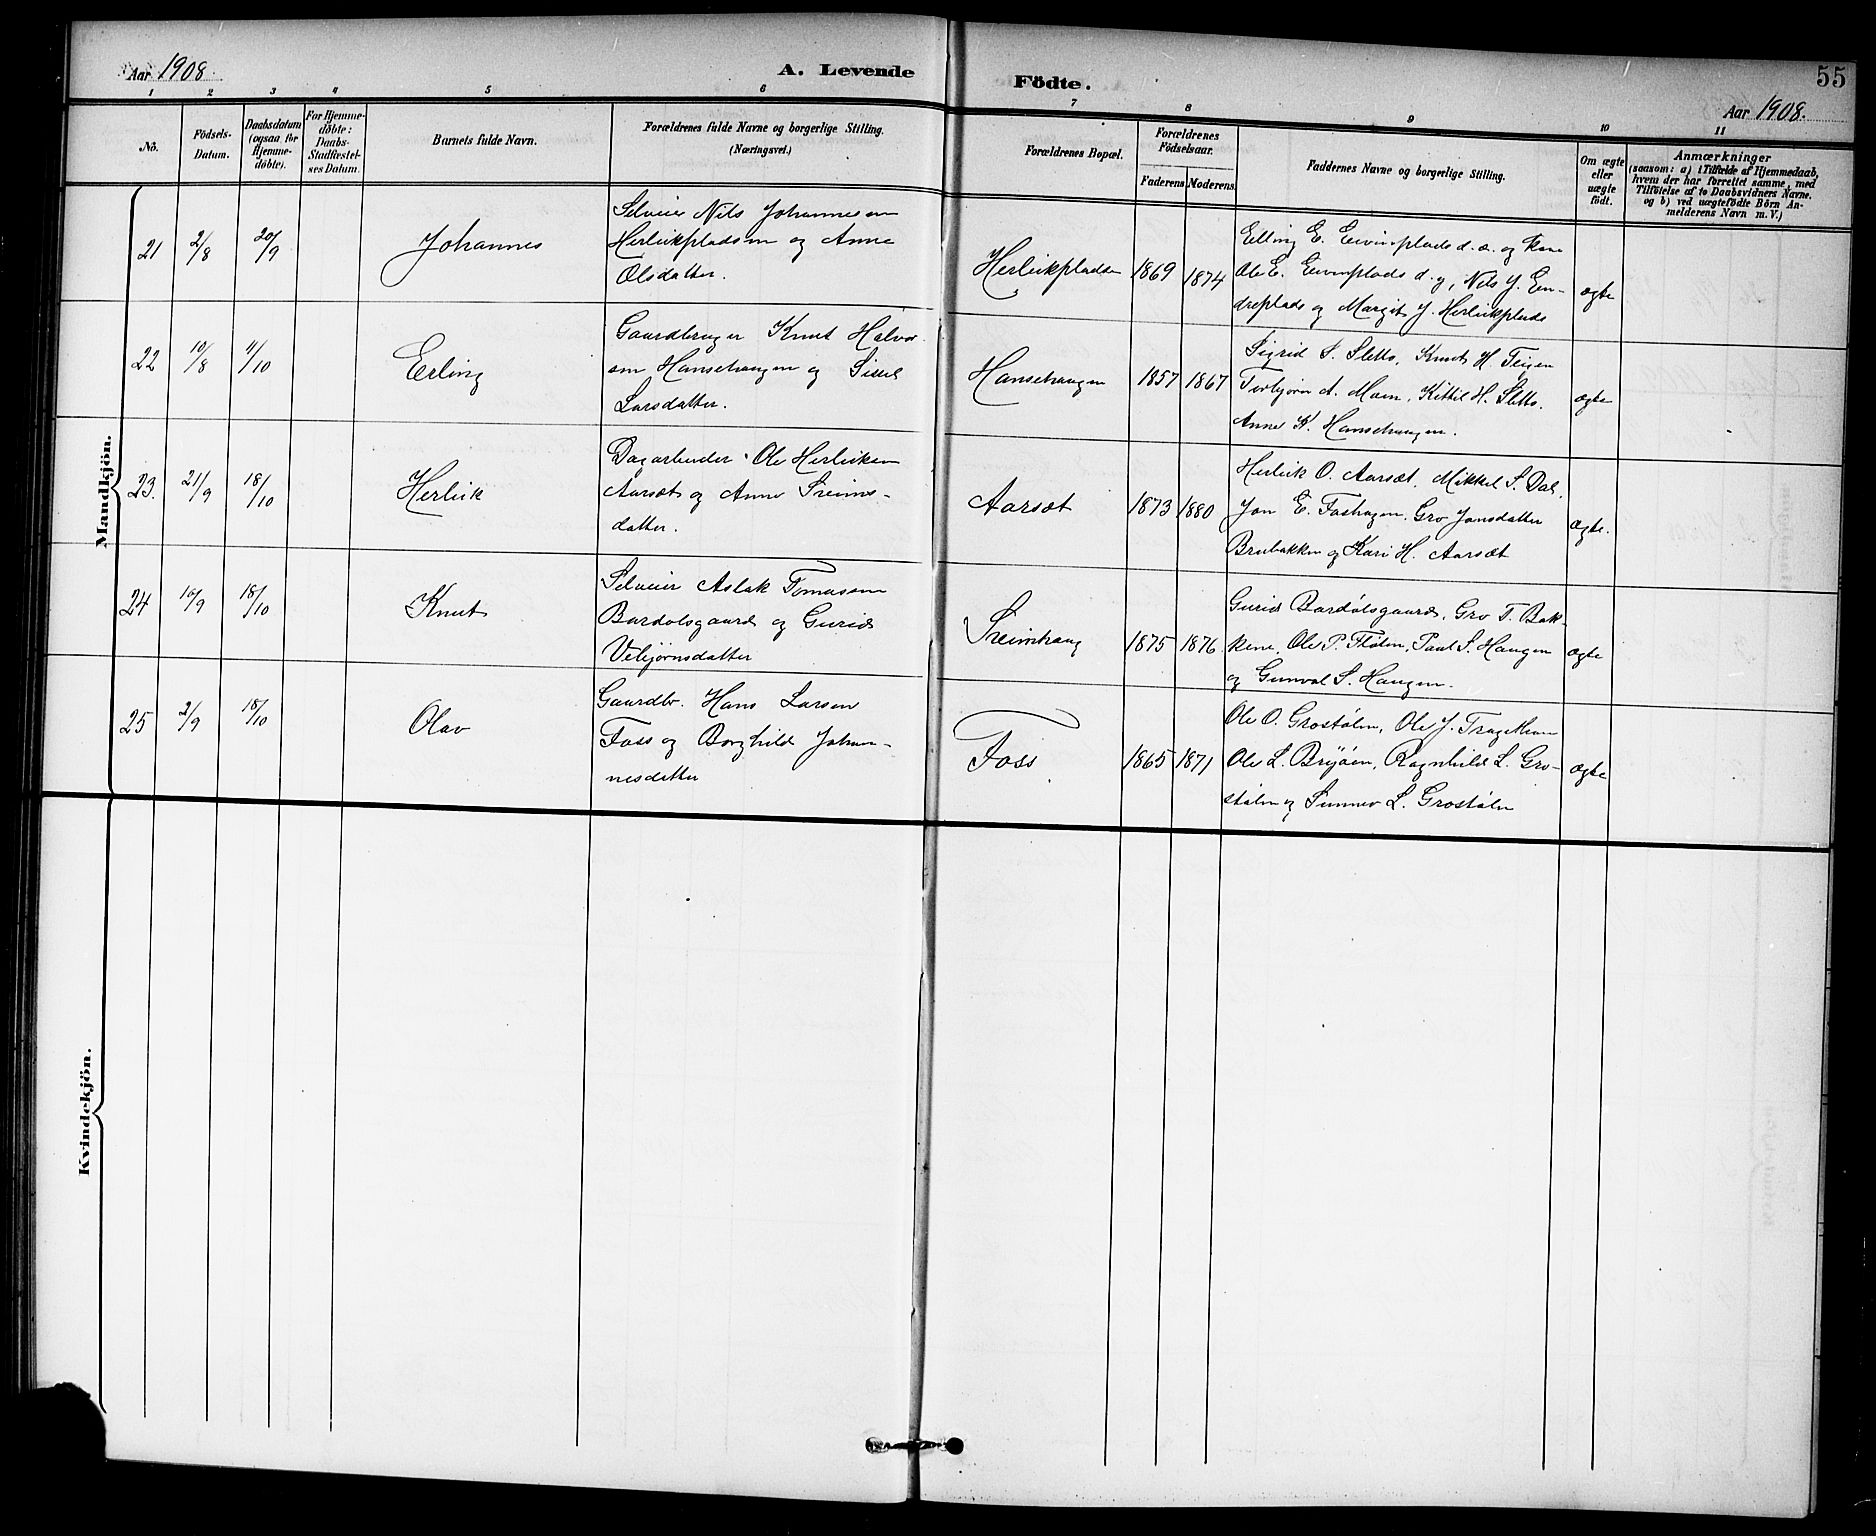 Aar 1908.
A. Levende
Födte.
55
Aar 1908.
1 2 3 4 5 6 7 8 9 10 11
No.
Födsels-
Datum.
Daabsdatum
(ogsaa for
Hjemme-
døbte).
For Hjemme-
døbte:
Daabs-
Stadfæstel-
ses Datum.
Barnets fulde Navn.
Forældrenes fulde Navne og borgerlige Stilling.
(Næringsvei.)
Forældrenes Bopæl.
Forældrenes
Födselsaar.
Faderens Moderens
Faddernes Navne og borgerlige Stilling.
Om ægte
eller
uægte
født.
Anmærkninger
(saasom: a) i Tilfælde af Hjemmedaab,
hvem der har forrettet samme, med
Tilföielse af to Daabsvidners Navne.
og b) ved uægtefödte Börn An-
melderens Navn m. V.)
Mandkjön.
21 2/8 20/9 Johannes
Selveier Nils Johannesen
Herleikpladsen og Anne
Olsdatter.
Herleikpladsen 1869 1874
Elling E. Eivinplads d. æ. og Kone
Ole E. Eivinplads d. y, Nils J. Ein-
dreplads og Margit J. Herleikplads
ægte
22 10/8 4/10 Erling
Gaardbruger Knut Halvor-
sen Hansehaugen og Sissel
Larsdatter.
Hansehaugen 1857 1867
Sigrid S. Sletto, Knut H. Teigen
Torbjørn A. Moen, Kittil H. Sletto.
Anne K. Hansehaugen.
ægte
23. 21/9 18/10 Herleik
Dagarbeider Ole Herleiksen
Aarsæt og Anne Sveins-
datter.
Aarsæt 1873 1880
Herleik O. Aarsæt, Mikkel S. Dal,
Jon E. Foshagen, Gro Jonsdatter
Brubakken og Kari H. Aarsæt
Ægte.
24 10/9 18/10 Knut
Selveier Aslak Tomassen
Bardolsgaard og Gurid
Vebjørnsdatter
Sreimhaug 1875 1876
Gurid Bardølsgaard, Gro T. Bak-
kene, Ole P. Fløten, Paul S. Haugen
og Gunvol S. Haugen.
ægte
25 2/9 18/10 Olav
Gaardbr. Hans Larsen
Foss og Borghild Johan-
nesdatter
Foss 1865 1871
Ole O. Grostølen, Ole J.
Ole L. Brujøen, Ragnhild L. Gro-
stølen og Sunnev L. Grostølen
Ægte
Kvindekjön.